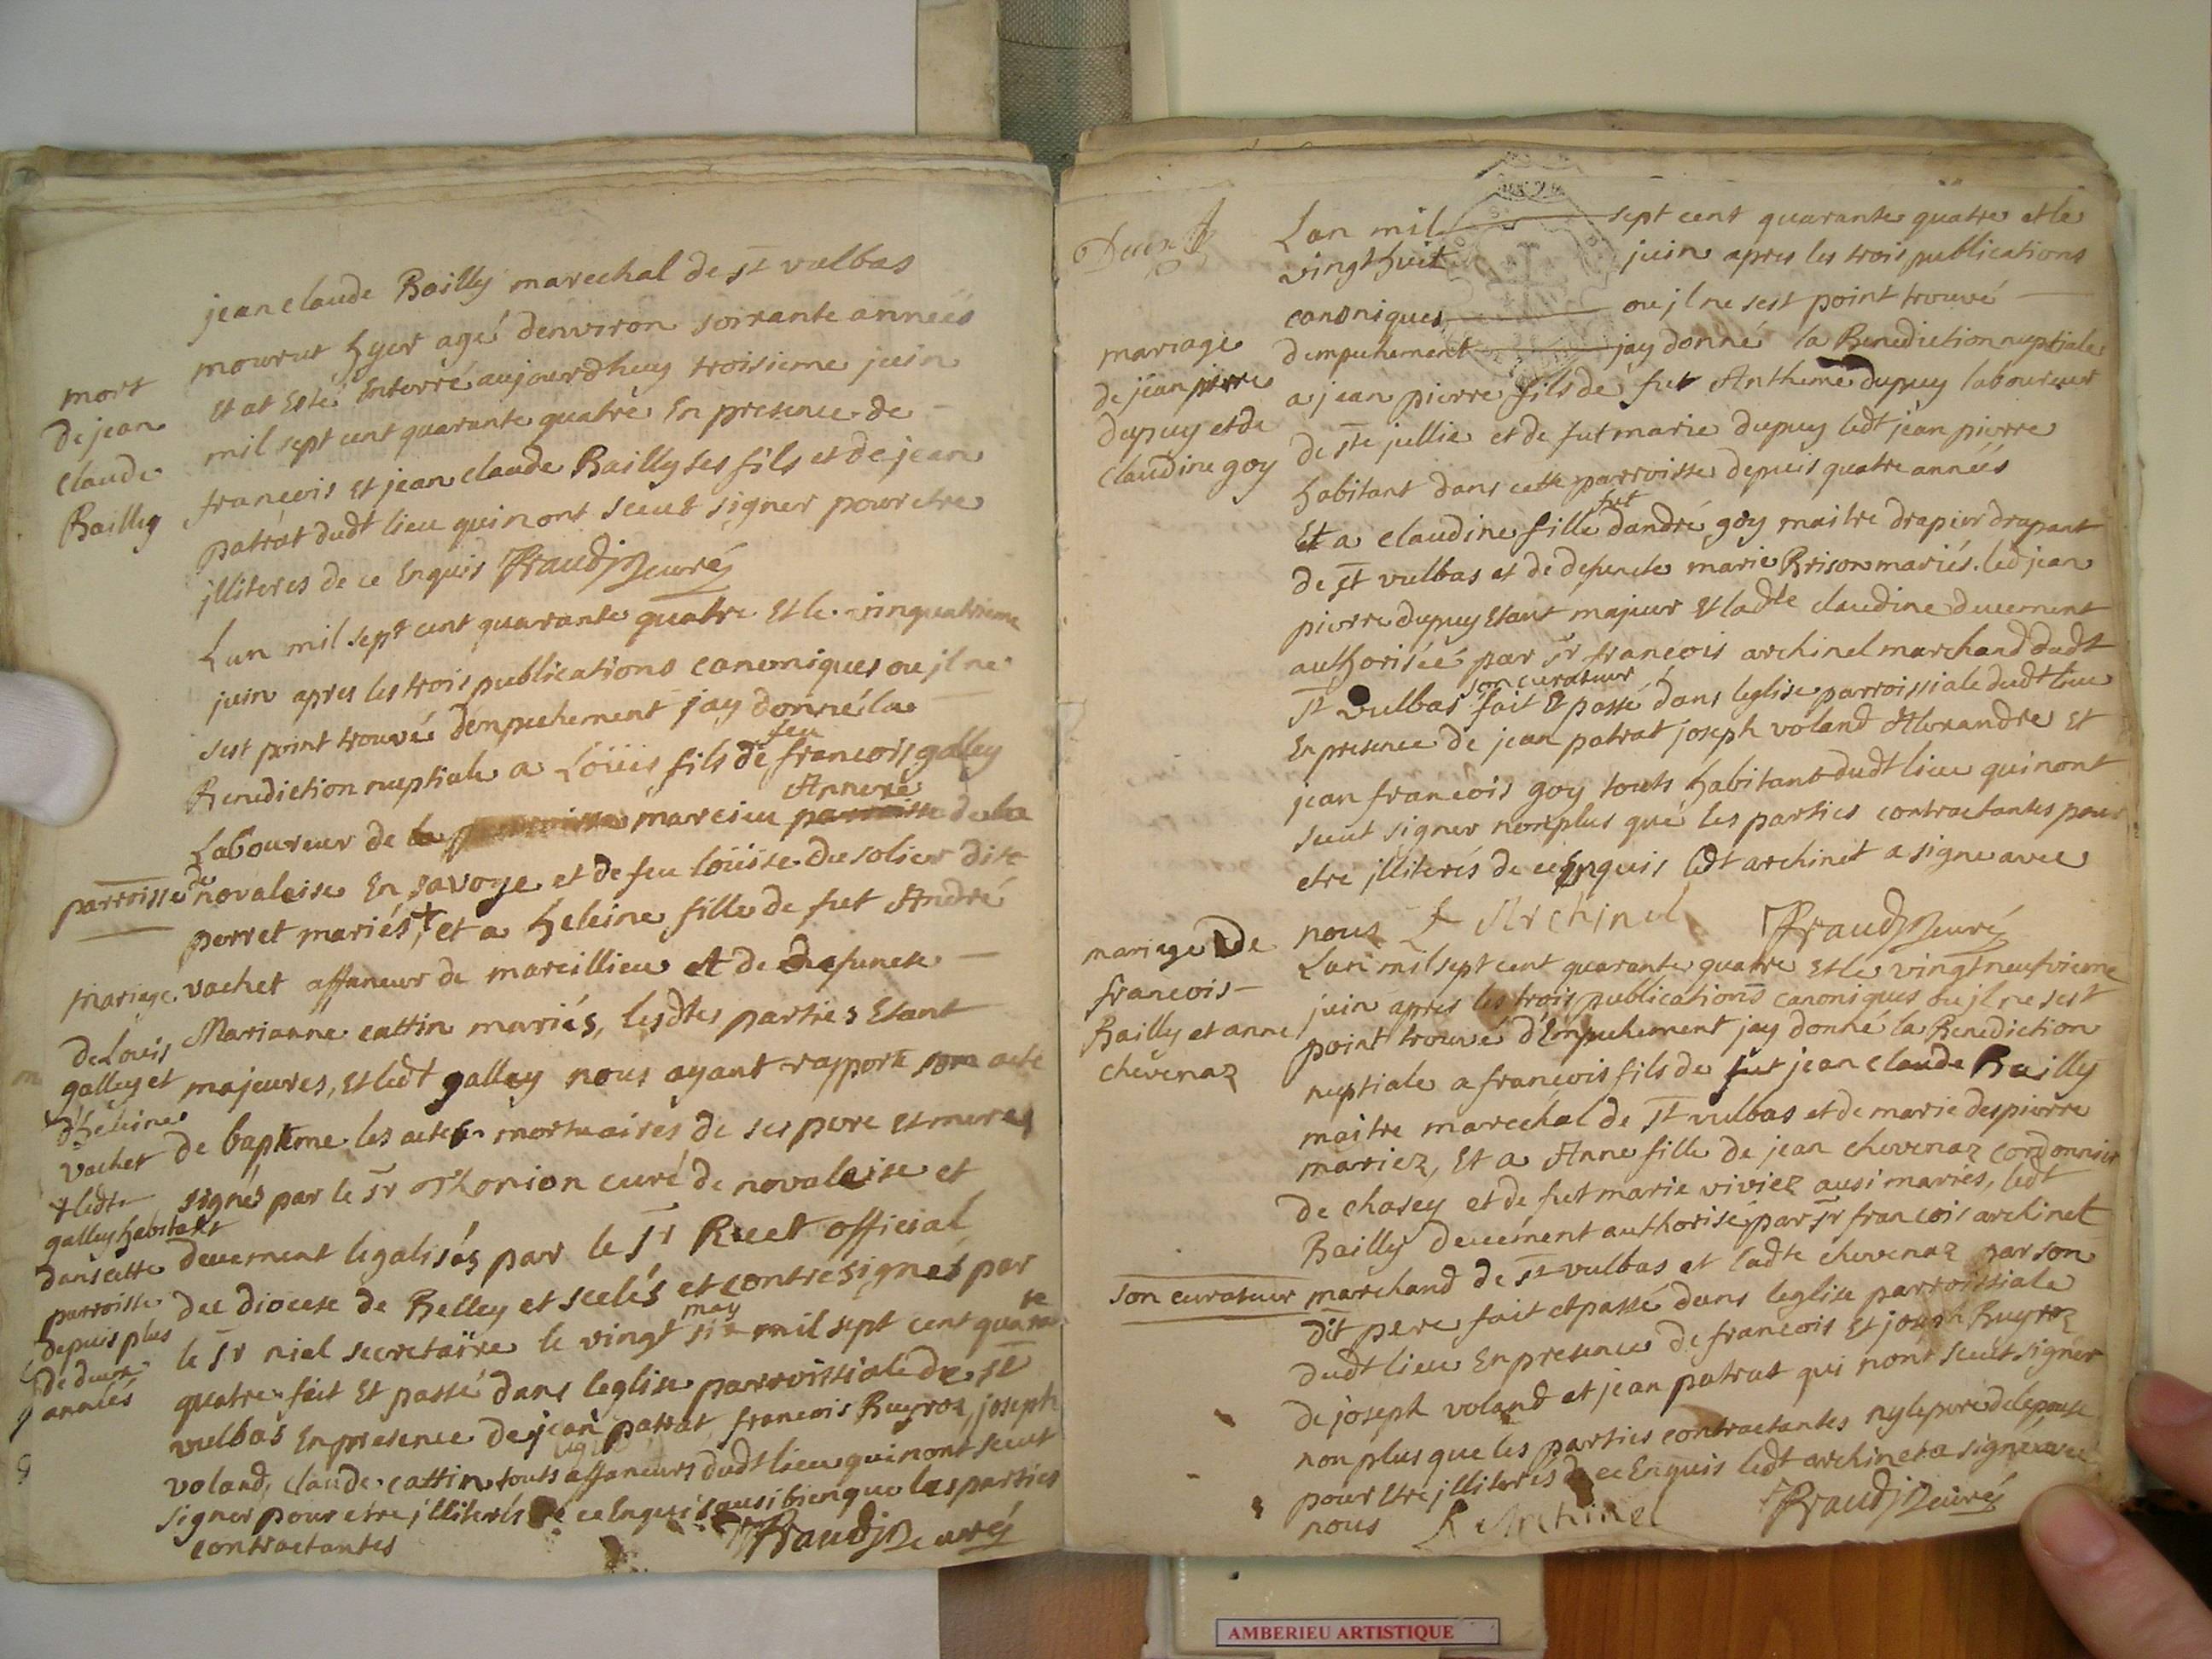 jean claude Bailly marechal de st vulbas
mourut hyer agé denviron soixante années
et at esté enterré aujourdhuy troisieme juin
mil sept cent quarante quatre En presence de
francois et jean claude Bailly ses fils et de jean
patrat dudt lieu qui nont sceut signer pour etre
jlliteres de ce Enquis curé
mort
de jean
claude
Bailly
Lan mil sept cent quarante quatre et le
juin apres les trois publications canoniques ou jl ne
sest point trouvé dempechement jay donné la
Benediction nuptiale a Loüis fils de feu francois galley
Laboureur de marcieu Annexé de la
parroisse de novalaise En savoye et de feu loüise du solier dite
perret mariés, + et a heleine fille de fut André
vachet affaneur de marcillieu et de defuncte
Marianne cattin mariés, lesdtes parties Etant
majeures, et ledt galley nous ayant rapporté son acte
de bapteme les actes mortuaires de ses pere et mere
signés par le sr Thonion curé de novalaise et
deuement legalisés par le sr official
du diocese de Belley et scelés et contresignés par
le sr niel secretaire le vingt six may mil sept cent quarante
quatre fait et passé dans leglise parroissiale de st
vulbas En presence de jean patrat francois Ruyroz, joseph
voland, claude cattin touts affaneurs dudt lieu qui nont sceut
signer pour etre jlliterés de ce Enquis ausi bien que les parties
contractantes curé
mariage
de Louis
galley et
d'heleine
vachet
+ ledt
galley habitant
dans cette
parroisse
depuis plus
de deux
années
Lan mil sept cent quarante quatre et le
vingt huit juin apres les trois publications
canoniques ou jl ne sest point trouvé
dempechement jay donné la Benediction nuptiale
a jean pierre fils de fut Antheme dupuy laboureur
de ste jullie et de fut marie dupuy ledt jean pierre
habitant dans cette parroisse depuis quatre années
Et a claudine fille fut dandré goy maitre drapier drapant
de st vulbas et de defuncte marie Brison mariés. led jean
pierre dupuy Etant majeur et ladte claudine deuement
authorisée par sr francois archinet marchand dudt
st vulbas son curateur fait et passé dans leglise parroissiale dudt lieu
En presence de jean patrat joseph voland Alexandre et
jean francois goy touts habitants dudt lieu qui nont
sceut signer non plus que les parties contractantes pour
etre jlliterés de ce Enquis ledt archinet a signe avec
nous Archinet curé
mariage
de jean pierre
dupuy et de
claudine goy
mariage de
francois
Bailly et anne
chevenaz
Lan mil sept cent quarante quatre et le vingt neufvieme
juin apres les trois publications canoniques ou jl ne sest
point trouvé dEmpechement jay donné la Benediction
nuptiale a francois fils de fut jean claude Bailly
maitre marechal de st vulbas et de marie despierre
mariez, Et a Anne fille de jean chevenaz cordonnier
de chasey et de fut marie viviez ausi mariés, ledt
Bailly deuement authorisé par sr francois archinet
son curateur marchand de st vulbas et ladte chevenaz par son
dit pere fait et passé dans leglise parroissiale
dudt lieu En presence de francois Et joseph Ruyroz
de joseph voland et jean patrat qui nont sceut signer
non plus que les parties contractantes ny le pere de lepouse
pour etre jlliterés de ce Enquis ledt archinet a signé avec
nous Archinet curé
AMBERIEU ARTISTIQUE